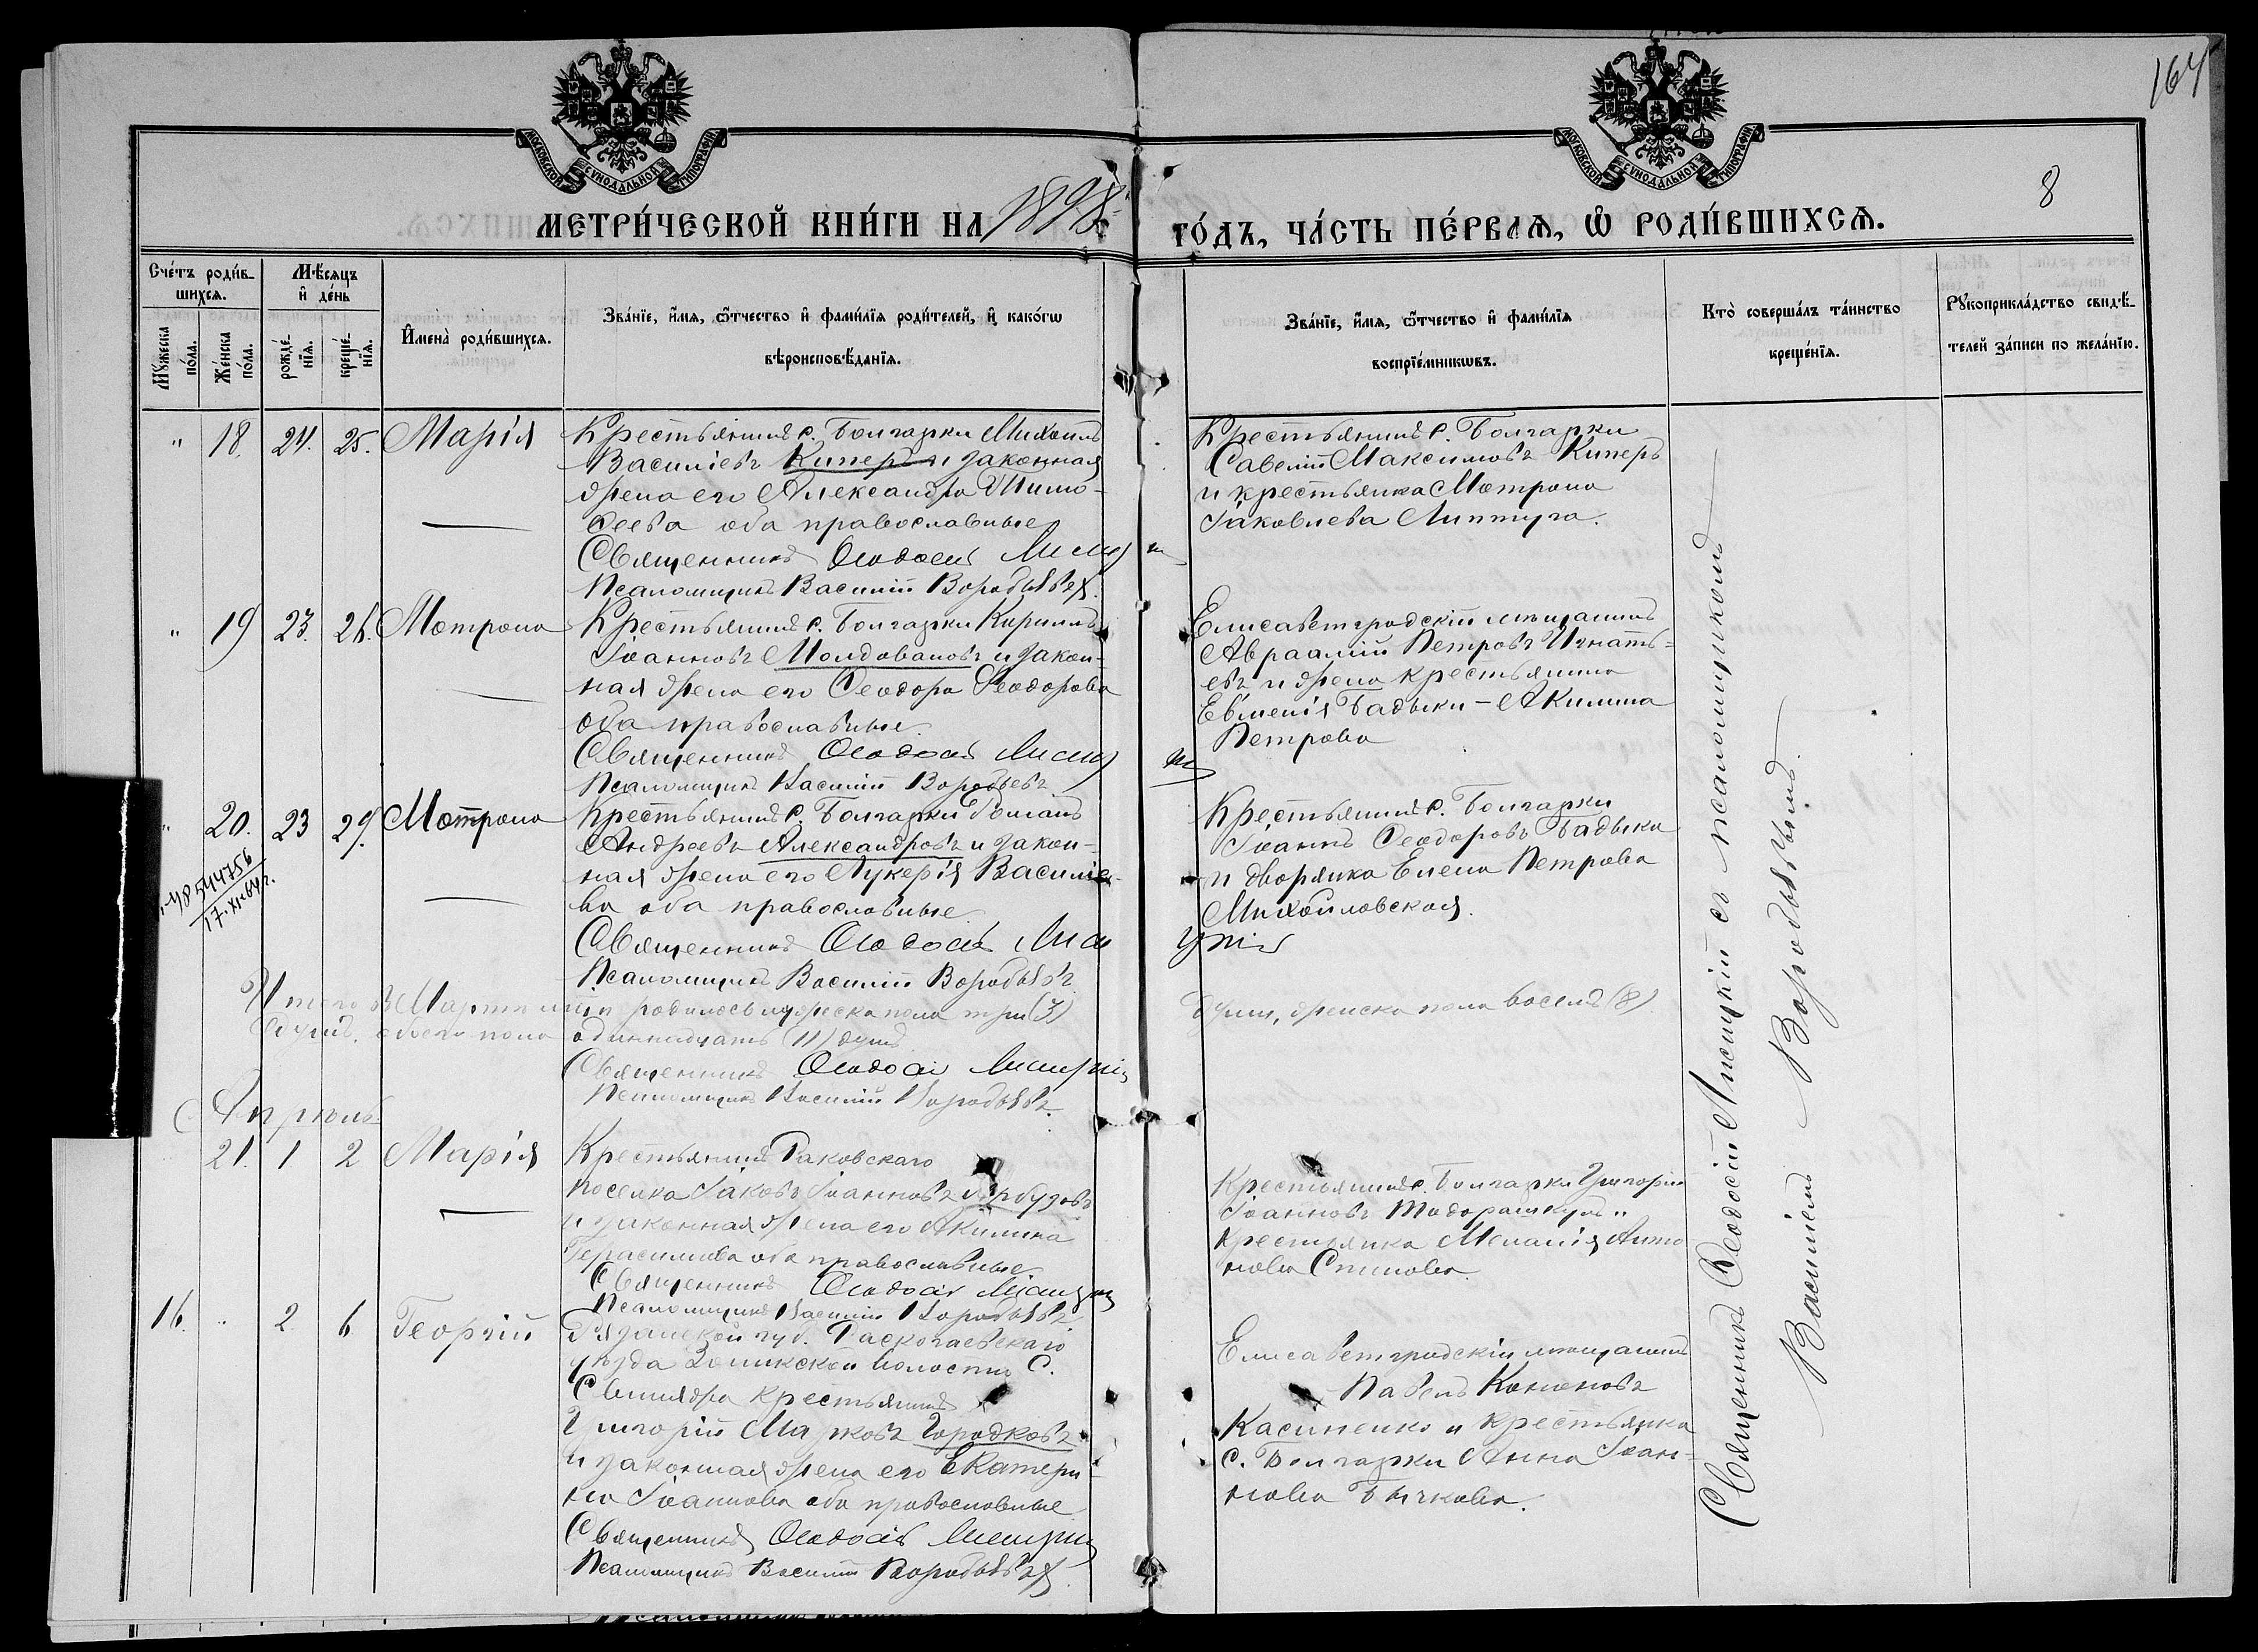 164
8
МОСКОВСКОЙ СѴНОДАЛЬНОЙ ТИПОГРАФІИ
МОСКОВСКОЙ СѴНОДАЛЬНОЙ ТИПОГРАФІИ
МЕТРИ́ЧЕСКОЙ КНИ́ГИ НА 1898 ГО́ДЪ, ЧА́СТЬ ПЕ́РВАЯ, Ѽ РОДИ́ВШИХСѦ.
Сче́тъ роди́в-
шихсѧ.
Мꙋ́жеска
по́ла.
Же́нска
по́ла.
Мѣ́сяцъ
и҆ де́нь
рожде́-
нїѧ.
креще́-
нїѧ.
И҆мена̀ роди́вшихсѧ.
Зва́нїе, и҆́мѧ, ѻ҆́тчество и҆ фами́лїѧ роди́телей, и҆ како́гѡ
вѣроисповѣ́данїѧ.
Зва́нїе, и҆́мѧ, ѻ҆́тчество и҆ фами́лїѧ
воспрїе́мникѡвъ.
Кто̀ соверша́лъ та́инство
креще́нїѧ.
Рꙋкоприкла́дство свидѣ́-
телей за́писи по жела́нїю.
" 18. 24. 25. Марія
Крестьянинъ с. Болгарки Михаилъ
Василіевъ Киперъ и законная
жена его Александра Тимо-
ѳеева оба православные
Священникъ Ѳеодосій Лисицкій
Псаломщикъ Василій Воробьевъ.
Крестьянинъ с. Болгарки
Савелій Максимовъ Киперъ
и крестьянка Матрона
Іаковлева Липтуга.
" 19 23. 26. Матрона
Крестьянинъ с. Болгарки Кириллъ
Іоанновъ Молдовановъ и закон-
ная жена его Ѳеодора Ѳеодорова
оба православные.
Священникъ Ѳеодосій Лисицкій
Псаломщикъ Василій Воробьевъ
Елисаветградскій мѣщанинъ
Авраамій Петровъ Игнать-
евъ и жена крестьянина
Евменія Бадыки - Акилина
Петрова
" 20. 23 29. Матрона
Крестьянинъ с. Болгарки Романъ
Андреевъ Александровъ и закон-
ная жена его Лукерія Василіе-
ва оба православные.
Священникъ Ѳеодосій Лисицкій
Псаломщикъ Василій Воробьевъ
Крестьянинъ с. Болгарки
Іоаннъ Ѳеодоровъ Бадыка
и дворянка Елена Петрова
Михайловская.
544756
17.XI-64г.
Итого въ Мартѣ м-цѣ родилось мужеска пола три (3)
душъ, женска пола восемь (8)
душъ, обоего пола одиннадцать (11) душъ
Священникъ Ѳеодосій Лисицкій
Псаломщикъ Василій Воробьевъ.
Апрѣль
21. 1 2 Марія
Крестьянинъ Раковскаго
поселка Іаковъ Іоанновъ Арбузовъ
и законная жена его Акилина
Герасимова оба православные
Священникъ Ѳеодосій Лисицкій
Псаломщикъ Василій Воробьевъ
Крестьянинъ с. Болгарки Григорій
Іоанновъ Тодорашкулъ и
крестьянка Меланія Анто
нова Спинова.
16. " 2 6 Георгій
Рязанской губ. Раскогаевскаго
уѣзда Золикской волости С.
крестьянинъ
Григорій Марковъ Городковъ
и законная жена его Екатери-
на Іоаннова оба православные
Священникъ Ѳеодосій Лисицкій
Псаломщикъ Василій Воробьевъ
Елисаветградскій мѣщанинъ
Павелъ Кононовъ
Касиненко и крестьянка
с. Болгарки Анна Іоан-
нова Бычкова.
Священникъ Ѳеодосій Лисицкій съ псаломщикомъ
Василіемъ Воробьевымъ.